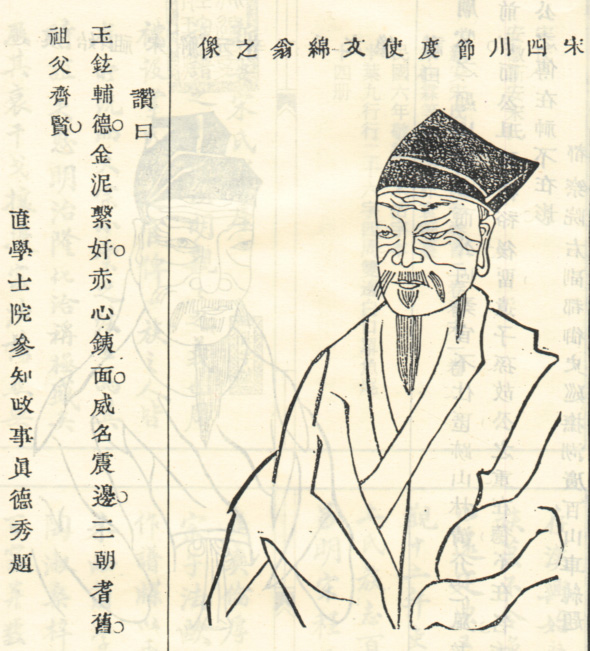 宋四川節度使文綿翁之像
讚曰
王鉉輔德○金泥繫奸○赤心銕面○威名震邊○三朝耆舊○
祖父齊賢○
直學士院參知政事眞德秀題